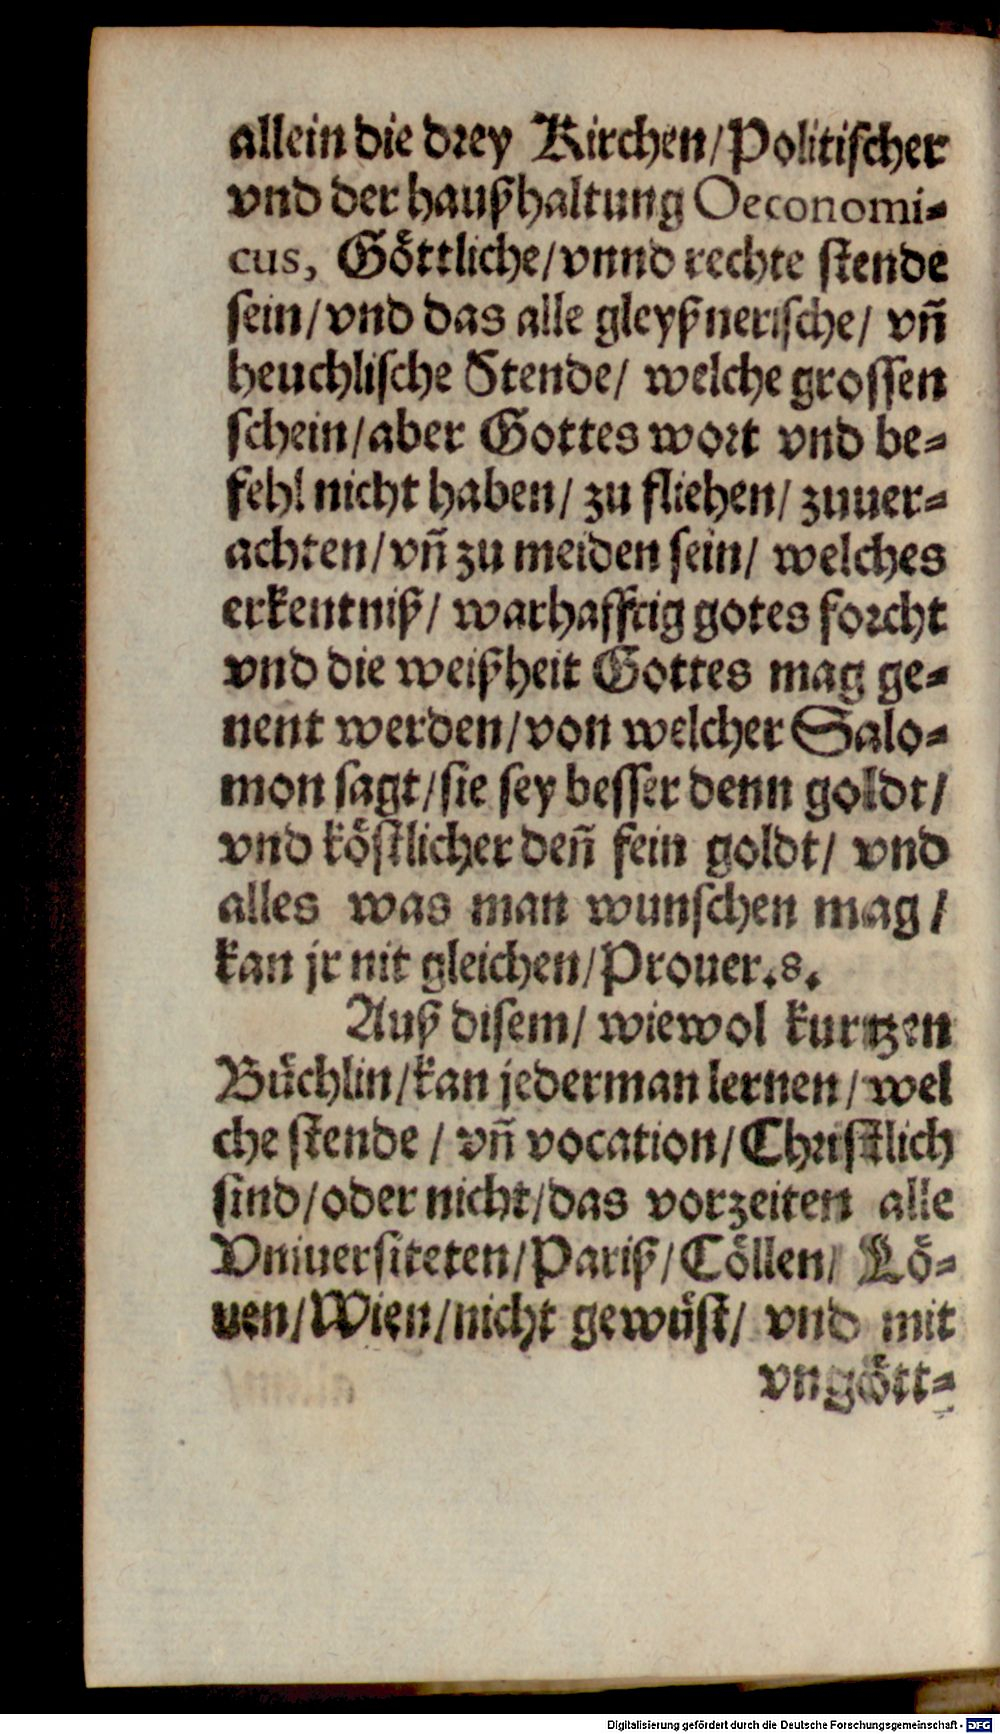 allein die drey Kirchen/Politischer
vnd der haußhaltung Oeconomi=
cus, Göttliche/vnnd rechte stende
sein/vnd das alle gleyßnerische/ vñ
heuchlische Stende/ welche grossen
schein/aber Gottes wort vnd be=
fehl nicht haben/ zu fliehen/ zuuer=
achten/vñ zu meiden sein/ welches
erkentniß/ warhafftig gotes forcht
vnd die weißheit Gottes mag ge=
nent werden/von welcher Salo=
mon sagt/sie sey besser denn goldt/
vnd köstlicher deñ fein goldt/ vnd
alles was man wunschen mag/
kan jr nit gleichen/Prouer.8.
Auß disem/ wiewol kurtzen
Büchlin/kan jederman lernen/wel
che stende/ vñ vocation/Christlich
sind/oder nicht/das vorzeiten alle
Vniuersiteten/Pariß/Cöllen/ Lö=
uen/Wien/nicht gewüst/ vnd mit
vngött=
Digitalisierung gefördert durch die Deutsche Forschungsgemeinschaft - DFG